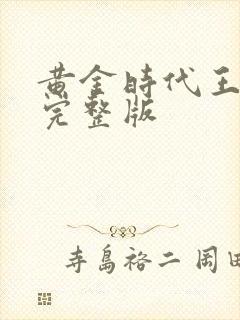 黄金時代王
完整版
寺島裕二 岡田